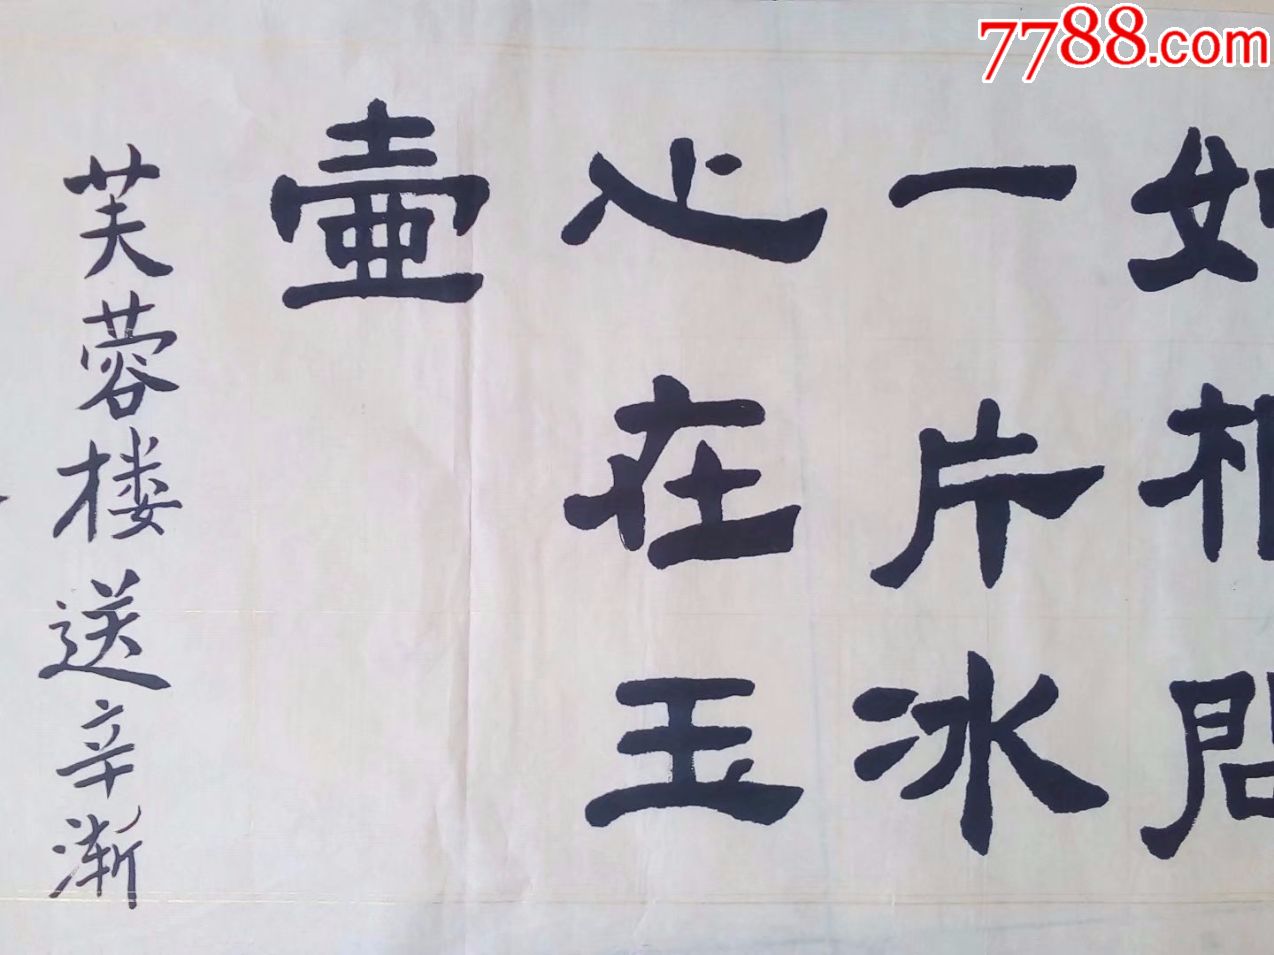 7788.com
如相問
一片冰
心在玉
壶
芙蓉楼送辛渐